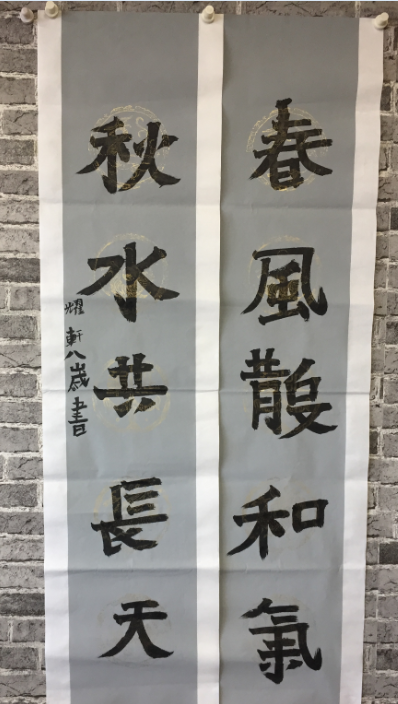 春風散和氣
秋水共長天
耀軒八歲書